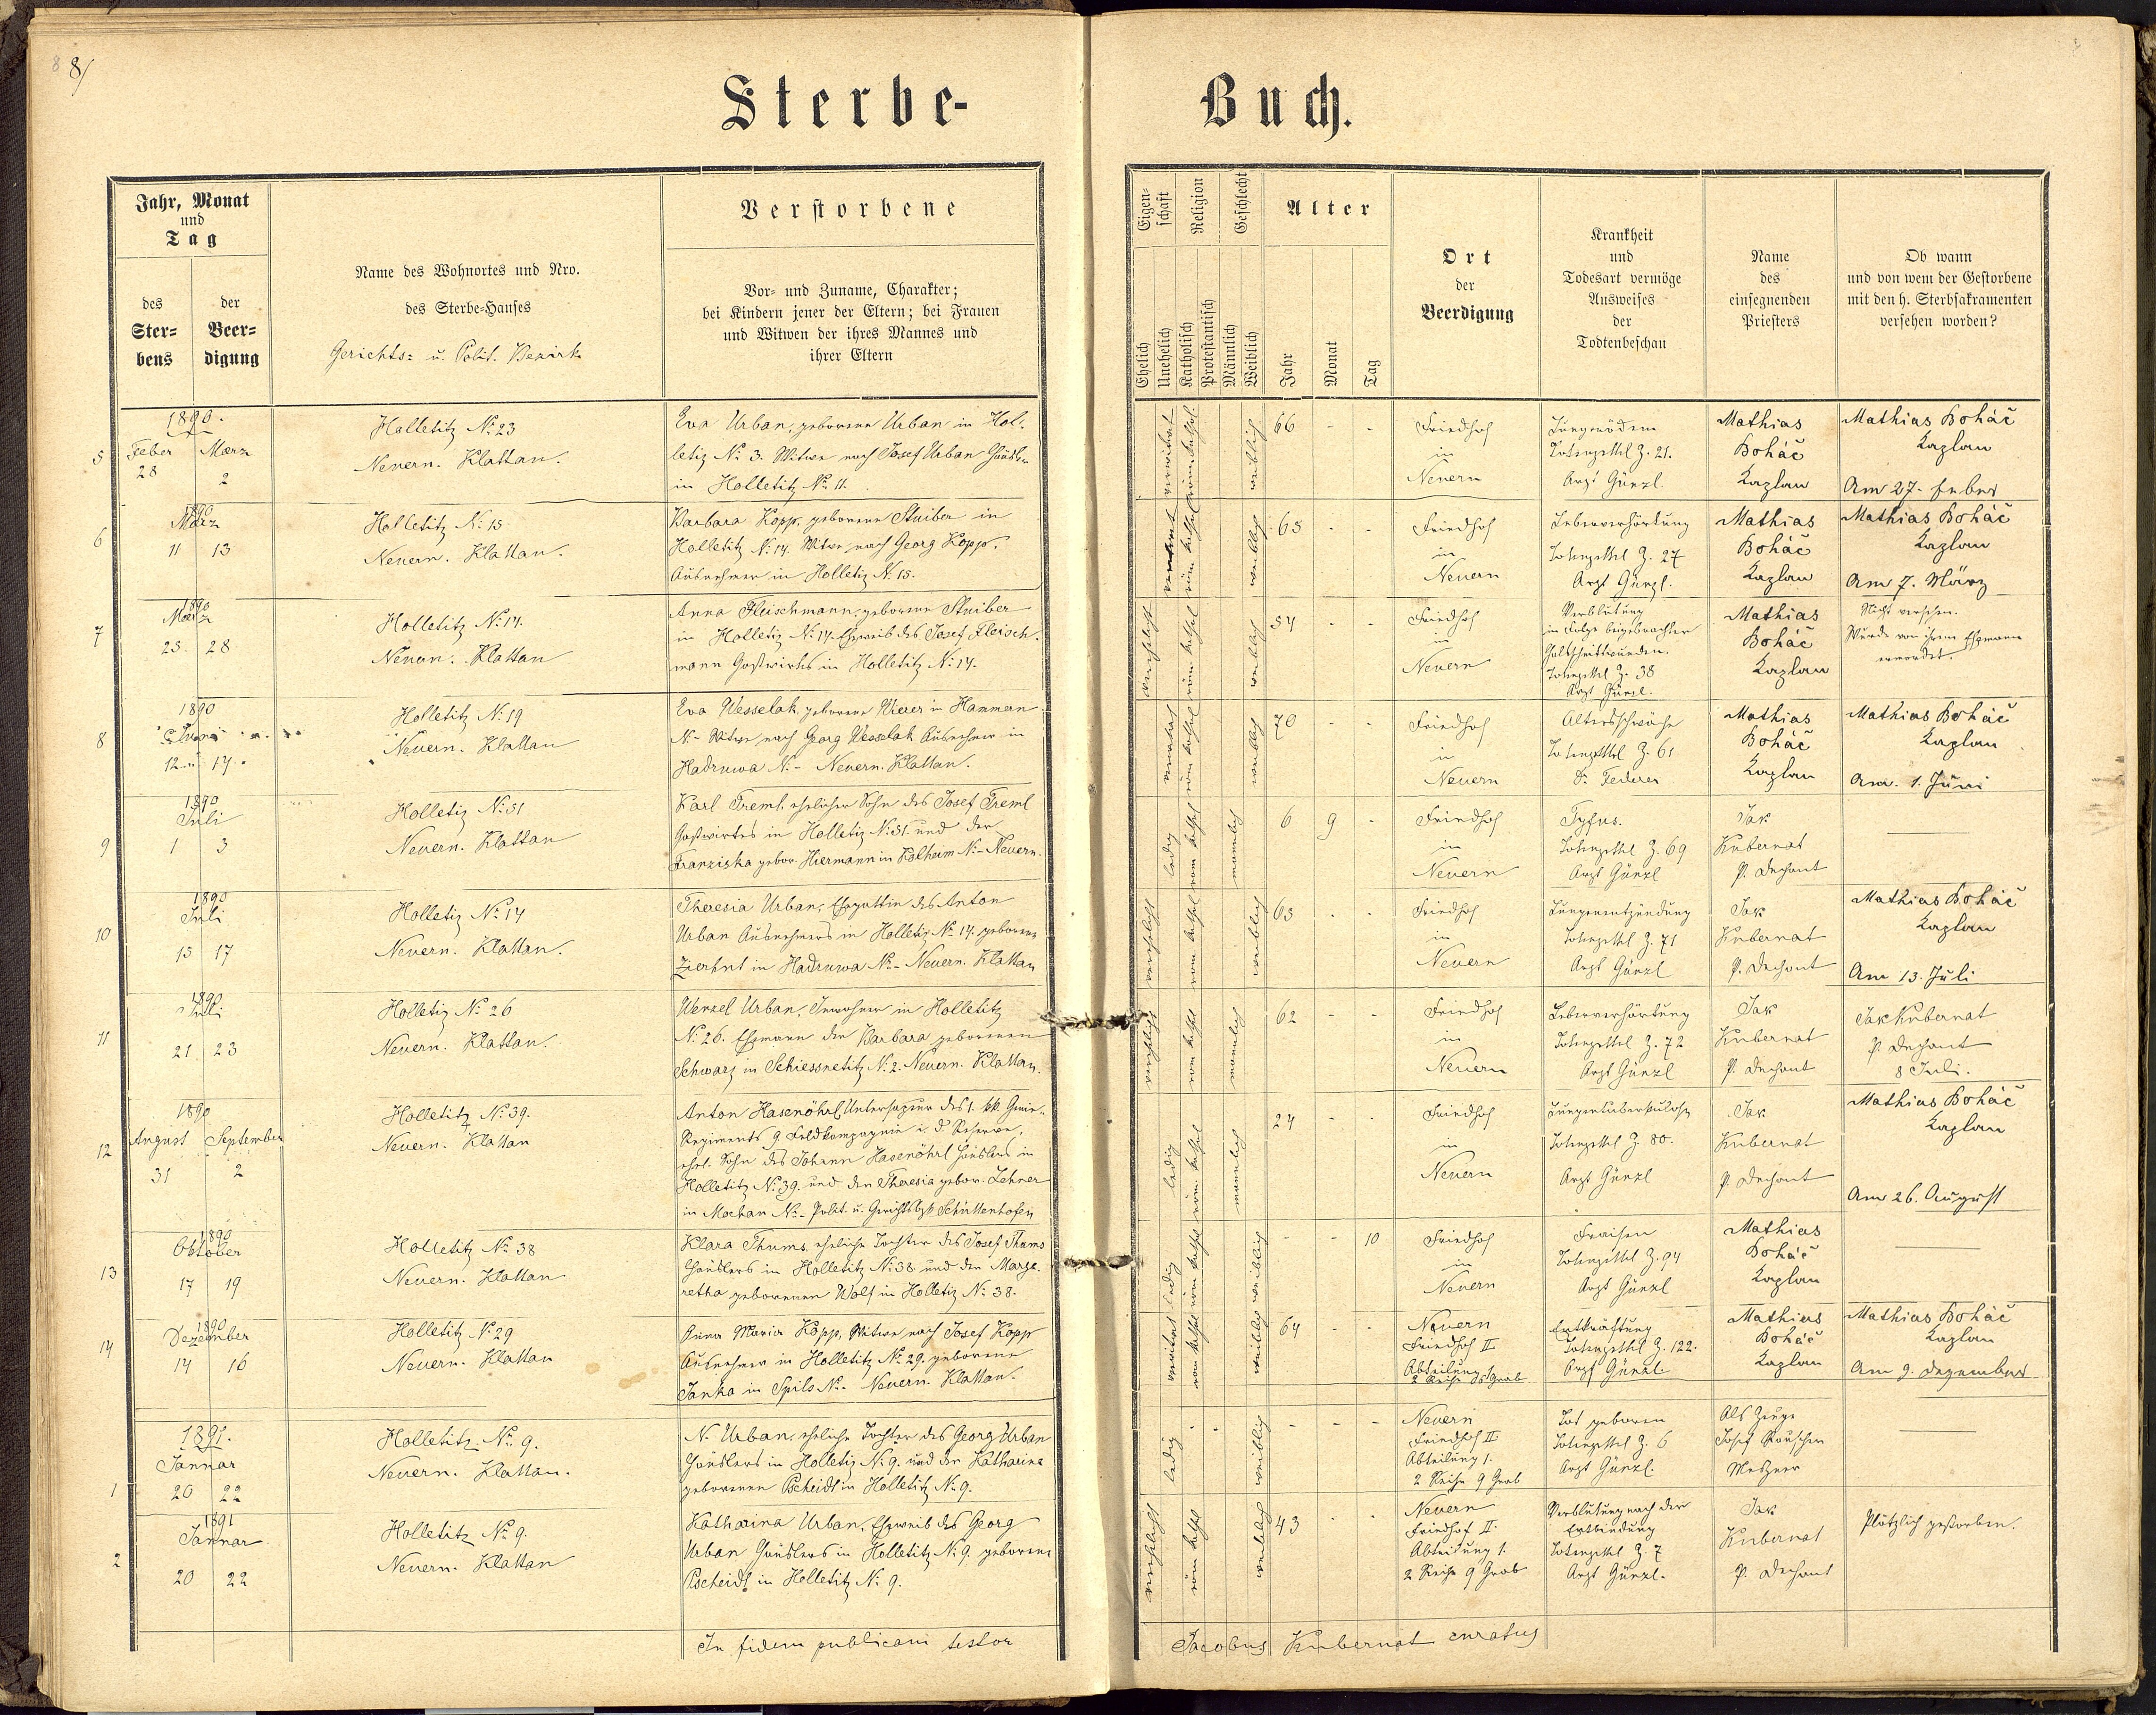 8/
Sterbe-
Buch.
Jahr, Monat
und
Tag
des
Ster-
bens
der
Beer-
digung
Name des Wohnortes und Nro.
des Sterbe-Hauses
Gerichts- u. Polit. Bezirk
Verstorbene
Vor- und Zuname, Charakter;
bei Kindern jener der Eltern; bei Frauen
und Witwen der ihres Mannes und
ihrer Eltern
Eigen-
schaft
Ehelich
Unehelich
Religion
Katholisch
Protestantisch
Geschlecht
Männlich
Weiblich
Alter
Jahr
Monat
Tag
Ort
der
Beerdigung
Krankheit
und
Todesart vermöge
Ausweises
der
Todtenbeschau
Name
des
einsegnenden
Priesters
Ob wann
und von wem der Gestorbene
mit den h. Sterbsakramenten
versehen worden?
5
1890.
Feber März
28 2
Holletitz No. 23
Neuern. Klattau.
Eva Urban, geborene Urban in Hol-
letiz No. 3. Witwe nach Josef Urban Häusler
in Holletitz No. 11.
verwitwet
röm. kathol.
weiblich
66 - -
Friedhof
in
Neuern
Lungenödem
Totenzettel Z. 21.
Arzt Günzl.
Mathias
Boháč
Kaplan
Mathias Boháč
Kaplan
Am 27. Feber
6
1890
März
11 13
Holletitz No. 15
Neuern. Klattau.
Barbara Kopp, geborene Stuiber in
Holletitz No. 14. Witwe nach Georg Kopp,
Ausnehmer in Holletiz No. 15.
röm. kathol.
weiblich
65 - -
Friedhof
in
Neuern
Leberverhärtung
Totenzettel Z. 27
Arzt Günzl.
Mathias
Boháč
Kaplan
Mathias Boháč
Kaplan
Am 7. März
7
1890
März
25. 28
Holletitz No. 14.
Neuern. Klattau
Anna Fleischmann, geborene Stuiber
in Holletiz No. 14. Eheweib des Josef Fleisch-
mann Gastwirths in Holletitz No. 14.
verehelicht
röm. kathol.
weiblich
54 - -
Friedhof
in
Neuern
Verblutung
in Folge beigebrachter
Halsschnittwunden.
Totenzettel Z. 38
Arzt Günzl.
Mathias
Boháč
Kaplan
Nicht versehen.
Wurde von ihrem Ehemanne
ermordet.
8
1890
Juni
12 14.
Holletitz No. 19
Neuern. Klattau
Eva Wesselak, geborene Wierer in Hammern
No. - Witwe nach Georg Wesselak Ausnehmer in
Hadruwa No. - Neuern. Klattau.
verwitwet
röm. kathol.
weiblich
70 - -
Friedhof
in
Neuern
Altersschwäche
Totenzettel Z. 61
Dr. Federer
Mathias
Boháč
Kaplan
Mathias Boháč
Kaplan
Am. 1. Juni
9
1890
Juli
1 3
Holletiz No. 31
Neuern. Klattau
Karl Treml, ehelicher Sohn des Josef Treml
Gastwirtes in Holletiz No. 31. und der
Franziska gebor. Hiermann in Kolheim No. - Neuern.
ledig
röm. kathol.
männlich
6 9 -
Friedhof
in
Neuern
Tyfus.
Totenzettel Z. 69
Arzt Günzl
Jak
Kubernat
P. Dechant
10
1890
Juli
15 17
Holletiz No. 14
Neuern. Klattau.
Theresia Urban, Ehegattin des Anton
Urban Ausnehmers in Holletiz No. 14. geborene
Zierhut in Hadruwa No. - Neuern. Klattau
verehelicht
röm. kathol.
weiblich
63 - -
Friedhof
in
Neuern
Lungenentzündung
Totenzettel Z. 71
Arzt Günzl
Jak
Kubernat
P. Dechant
Mathias Boháč
Kaplan
Am 13. Juli
11
1890
Juli
21. 23
Holletiz No. 26
Neuern. Klattau.
Wenzel Urban, Inwohner in Holletitz
No. 26. Ehemann der Barbara geborenen
Schwarz in Schiessnetitz No. 2. Neuern. Klattau.
verehelicht
röm. kathol.
männlich
62 - -
Friedhof
in
Neuern
Leberverhärtung
Totenzettel Z. 72
Arzt Günzl
Jak
Kubernat
P. Dechant
Jak Kubernat
P. Dechant
8 Juli.
12
1890
August September
31 2
Holletitz No. 39.
Neuern. Klattau
Anton Hasenöhrl, Untersapeur des 1. kk. Genie-
Regiments 9 Feldkompagnie i. d. Reserve,
ehel. Sohn des Johann Hasenöhrl Häuslers in
Holletitz No. 39. und der Theresia gebor. Lehner
in Mochau No. - Polit. u. Gerichtsbzk Schüttenhofen
ledig
röm. kathol.
männlich
24 - -
Friedhof
in
Neuern
Lungentuberkulose
Totenzettel Z. 80.
Arzt Günzl
Jak
Kubernat
P. Dechant
Mathias Boháč
Kaplan
Am 26. August
13
1890
Oktober
17 19
Holletitz No. 38
Neuern. Klattau
Klara Thums, eheliche Tochter des Josef Thums
Häuslers in Holletitz No. 38 und der Marga-
retha geborenen Wolf in Holletiz No. 38.
ledig
röm. kathol.
weiblich
- - 10
Friedhof
in
Neuern
Fraisen
Totenzettel Z. 94
Arzt Günzl
Mathias
Boháč
Kaplan
14
1890
Dezember
14 16
Holletitz No. 29
Neuern. Klattau
Anna Maria Kopp, Witwe nach Josef Kopp
Ausnehmer in Holletitz No. 29. geborene
Janka in Spils No. - Neuern. Klattau.
verwitwet
röm. kathol.
weiblich
64 - -
Neuern
Friedhof II
Abteilung 1.
2 Reihe 8 Grab
Entkräftung
Totenzettel Z. 122.
Arzt Günzl.
Mathias
Boháč
Kaplan
Mathias Boháč
Kaplan
Am 9. Dezember
1
1891.
Jannar
20 22
Holletitz No. 9.
Neuern. Klattau.
N. Urban, eheliche Tochter des Georg Urban
Häuslers in Holletiz No. 9. und der Katharina
geborenen Pscheidt in Holletitz No. 9.
ledig
weiblich
- - -
Neuern
Friedhof II
Abteilung 1.
2 Reihe 9 Grab
Tot geboren
Totenzettel Z. 6
Arzt Günzl.
Als Zeuge
Josef Rauscher
Meßner
2
1891
Jannar
20 22
Holletitz No. 9.
Neuern. Klattau
Katharina Urban, Eheweib des Georg
Urban Häuslers in Holletitz No. 9. geborene
Pscheidl in Holletitz No. 9.
verehelicht
röm. kathol.
weiblich
43 - -
Neuern
Friedhof II.
Abteilung 1.
2 Reihe 9 Grab
Verblutung nach der
Entbindung
Totenzettel Z. 7
Arzt Günzl.
Jak
Kubernat
P. Dechant
Plötzlich gestorben.
In fidem publicam testor
Jacobus Kubernat curatus